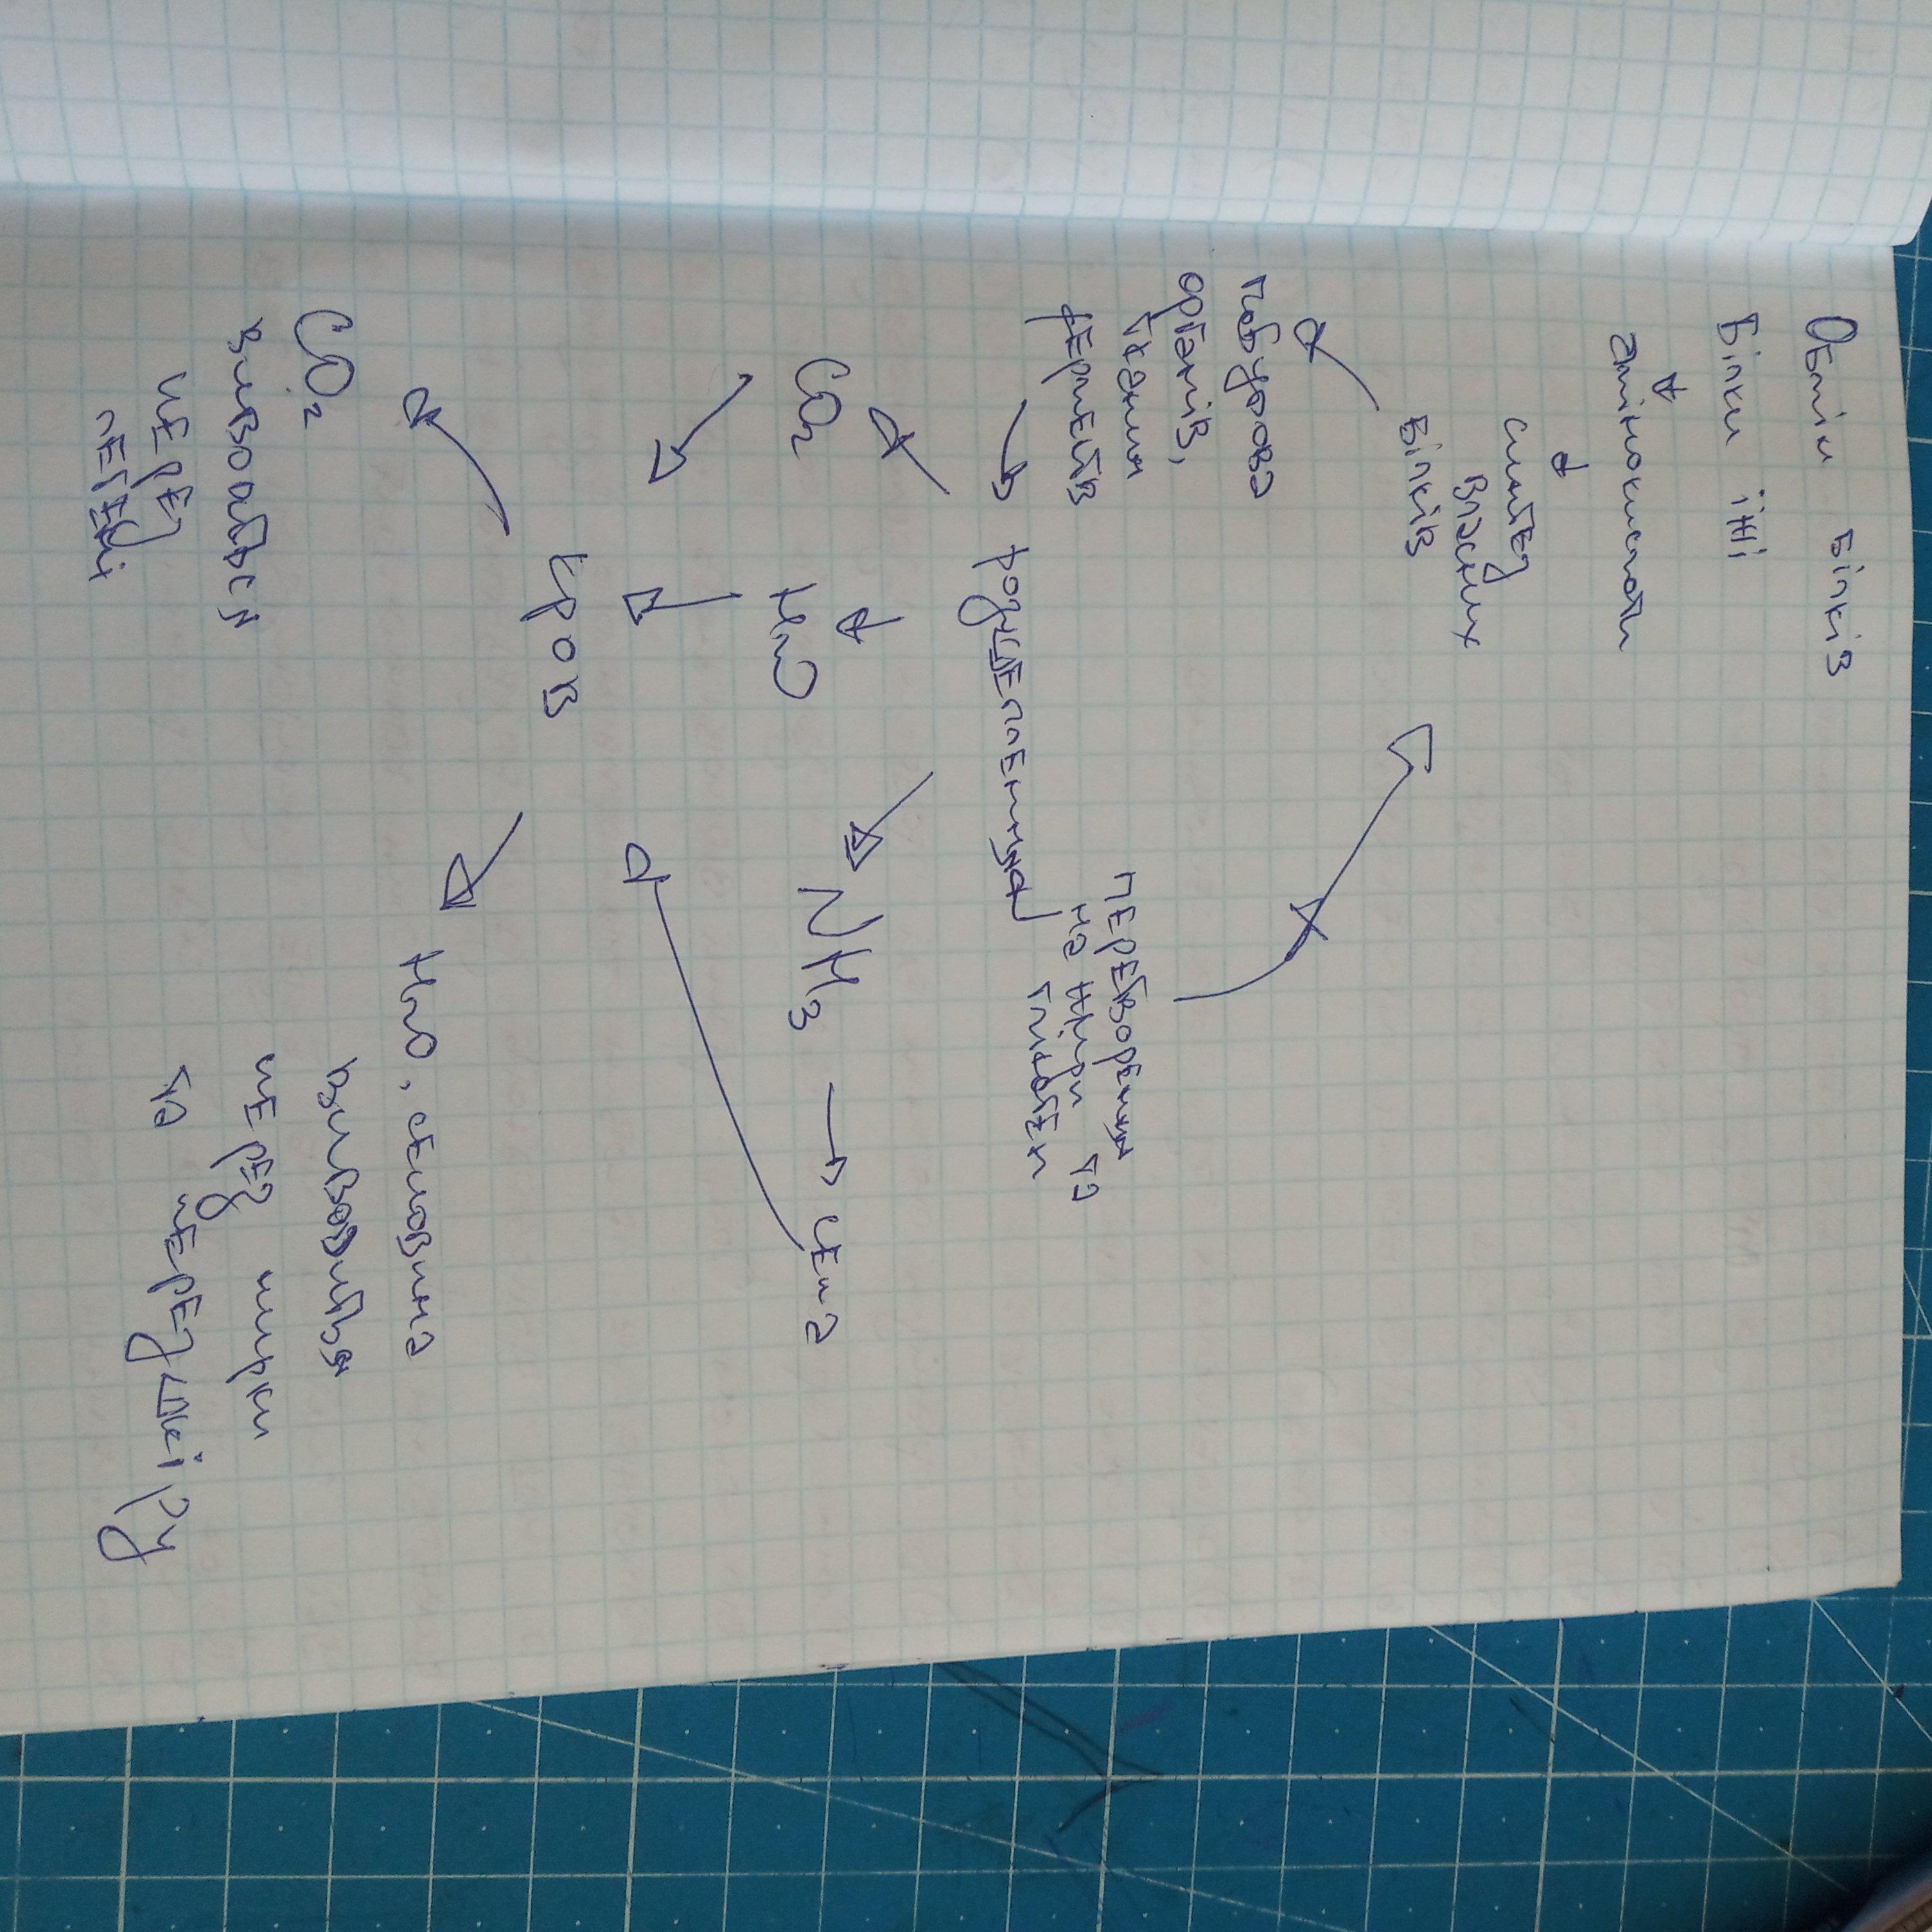 Обмін білків
Білки їжі
амінокислоти
синтез
власних
білків
побудова
органів,
тканин
ферментів
перетворення
на жири та
глікоген
розщеплення
CO₂
H₂O
NH₃ → сеча
кров
CO₂
виводиться
через
легені
H₂O, сечовина
виводиться
через нирки
та через шкіру